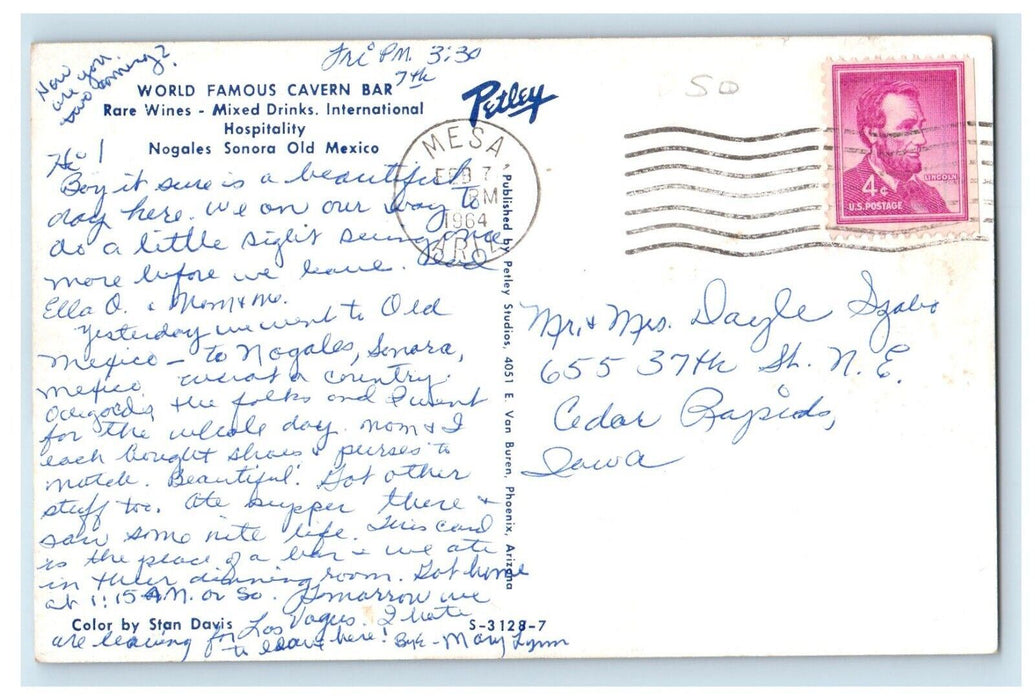 Fri. PM. 3:30
7th
How
are you
two coming?
WORLD FAMOUS CAVERN BAR
Rare Wines - Mixed Drinks. International
Hospitality
Nogales Sonora Old Mexico
Petley
50
MESA,
FEB 7
PM
1964
ARIZ.
LINCOLN
4¢
U.S. POSTAGE
Hi!
Boy it sure is a beautiful
day here. We on our way to
do a little sight seeing once
more before we leave.
Ella O. & Mom & me.
Yesterday we went to Old
Mexico — to Nogales, Sonora,
Mexico. What a country.
the folks and I went
for the whole day. Mom & I
each bought shoes & purses to
match. Beautiful! Got other
stuff too. Ate supper there &
saw some nite life. This card
is the place of a bar & we ate
in their dinning room. Got home
at 1:15 AM. or so. Tomorrow we
are leaving for Las Vagus. I hate
to leave here! Bye - Mary Lynn
Color by Stan Davis
S-3128-7
Published by Petley Studios, 4051 E. Van Buren, Phoenix, Arizona
Mr. & Mrs. Dayle Szabo
655 37th St. N.E.
Cedar Rapids,
Iowa